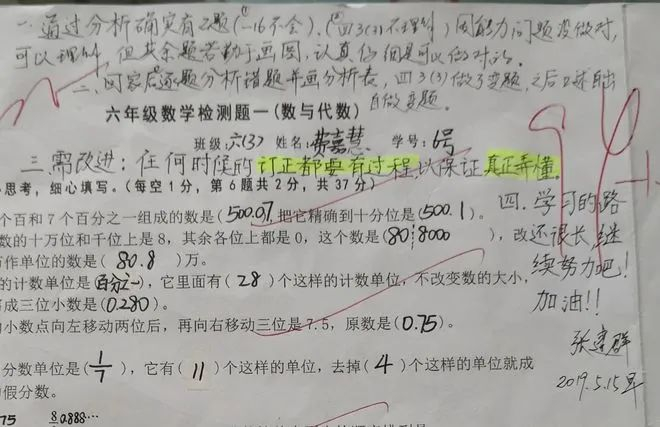 一.通过分析确实有2题(一16不会)、(四3(3)不理解)因能力问题没做对,
可以理解,但其余题若勤于画图,认真仔细是可以做对的。
二、回家后逐题分析错题并画分析表,四3(3)做了变题,之后口述自出
自做变题。
六年级数学检测题一(数与代数)
班级:六(3) 姓名:费嘉慧 学号:6号
三.需改进:任何时候的订正都要有过程,以保证真正弄懂.
思考,细心填写。(每空1分,第6题共2分,共37分)
个百和7个百分之一组成的数是(500.07),把它精确到十分位是(500.1)。
数的十万位和千位上是8,其余各位上都是0,这个数是(80 8000),改
作单位的数是(80.8)万。
的计数单位是(百分之一),它里面有(28)个这样的计数单位,不改变数的大小,
成三位小数是(0.280)。
小数点向左移动两位后,再向右移动三位是7.5,原数是(0.75)。
分数单位是(1/7),它有(11)个这样的单位,去掉(4)个这样的单位就成
假分数。
四.学习的路
还很长,继
续努力吧!
加油!!
张建群
2019.5.15早
75 0.888…